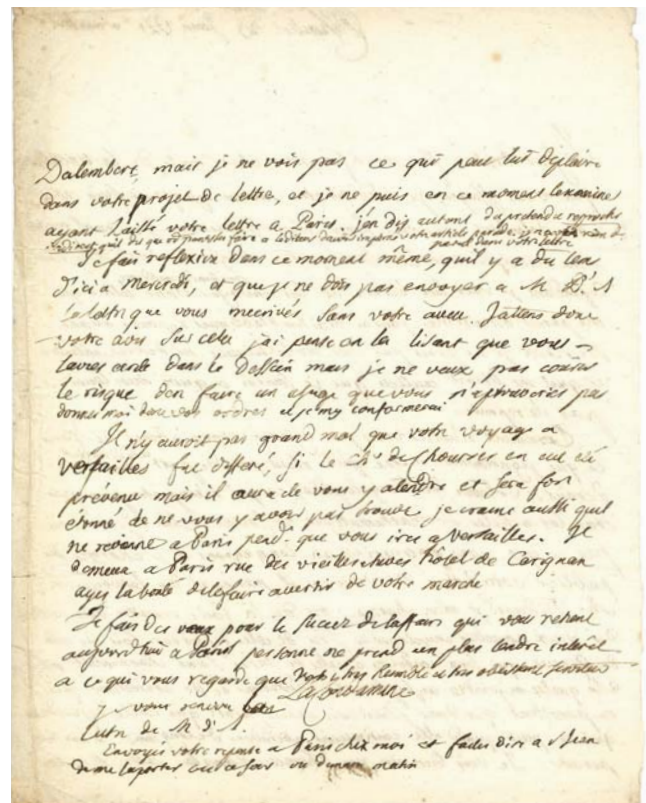 Dalembert, mais je ne vois pas ce qui peut lui deplaire
dans votre projet de lettre, et je ne puis en ce moment lexaminer
ayant laissé votre lettre a Paris. j'en dis autant du pretendu reproche
dans votre lettre
Je fais reflexion dans ce moment même, quil y a du tems
d'ici a mercredi, et que je ne dois pas envoyer a M
la lettre que vous mecrivés sans votre aveu. Jattens donc
votre avis sur cela jai pensé en la lisant que vous
laviés ecrite dans ce dessein mais je ne veux pas courir
le risque den faire un usage que vous napprouveriés pas
donnés moi donc vos ordres et je my conformerai
Il n'y auroit pas grand mal que votre voyage a
versailles fut differé, si le Ch.r de Chourses en eut eté
prévenu mais il aura cru vous y atendre et sera fort
étonné de ne vous y avoir pas trouvé je crains aussi quil
ne revienne a Paris pend.t que vous irés a Versailles. Il
demeure a Paris rue des vieilles etuves hôtel de Carignan
ayés la bonté de le faire avertir de votre marche
Je fais des vœux pour le succez de laffaire qui vous retient
aujourdhui a Paris personne ne prend un plus tendre interêt
a ce qui vous regarde que votre tres humble et tres obeissant serviteur
LaCondamine
je vous renvoie
lettre de M d'A.
Envoyés votre reponse a Paris chez moi et faites dire a St Jean
de me laporter ce soir ou demain matin